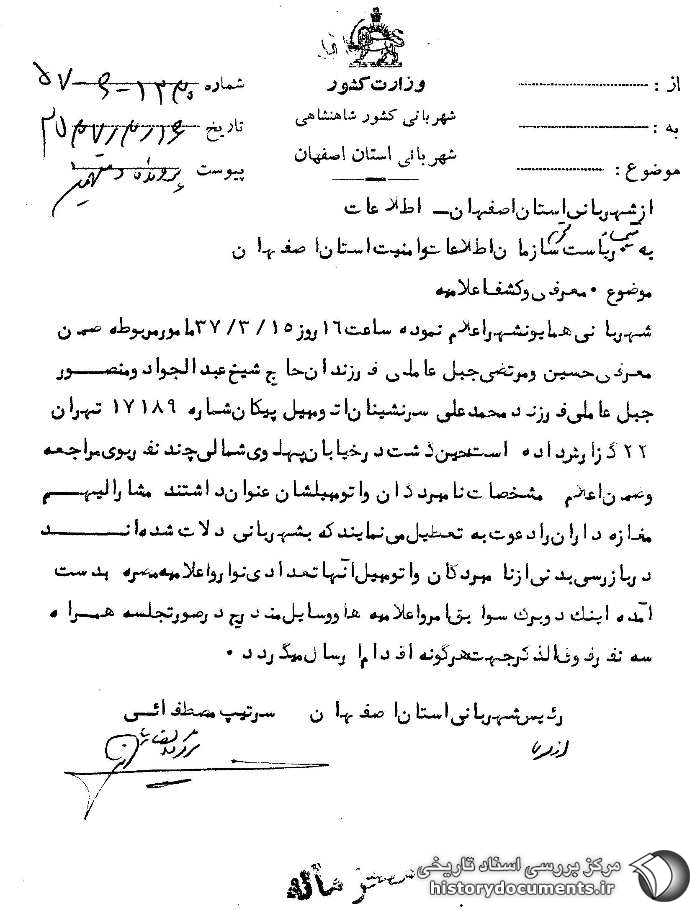 وزارت کشور
شهربانی کشور شاهنشاهی
شهربانی استان اصفهان
از :
به :
موضوع :
شماره ۵۷-۶-۱۲۳۰
تاریخ ۲۵۳۷/۳/۱۶
پیوست پرونده و متهمین
از شهربانی استان اصفهان - اطلاعات
به ریاست سازمان اطلاعات و امنیت استان اصفهان
موضوع . معرفی و کشف اعلامیه
شهربانی همایونشهر اعلام نموده ساعت ۱۶ روز ۳۷/۳/۱۵ مامور مربوطه ضمن
معرفی حسین و مرتضی جبل عاملی فرزندان حاج شیخ عبدالجواد و منصور
جبل عاملی فرزند محمدعلی سرنشینان اتومبیل پیکان شماره ۱۷۱۸۹ تهران
۲۲ گزارش داده است حین گشت در خیابان پهلوی شمالی چند نفر بوی مراجعه
و ضمن اعلام مشخصات نامبردگان و اتومبیلشان عنوان داشتند مشارالیهم
مغازه داران را دعوت به تعطیل می نمایند که بشهربانی دلالت شده اند
در بازرسی بدنی از نامبردگان و اتومبیل آنها تعدادی نوار و اعلامیه مضره بدست
آمده اینک دو برگ سوابق امر و اعلامیه ها و وسایل مندرج در صورتجلسه همراه
سه نفر فوق الذکر جهت هرگونه اقدام ارسال میگردد .
رئیس شهربانی استان اصفهان سرتیپ مصطفائی
از طرف
مرکز بررسی اسناد تاریخی
historydocuments.ir